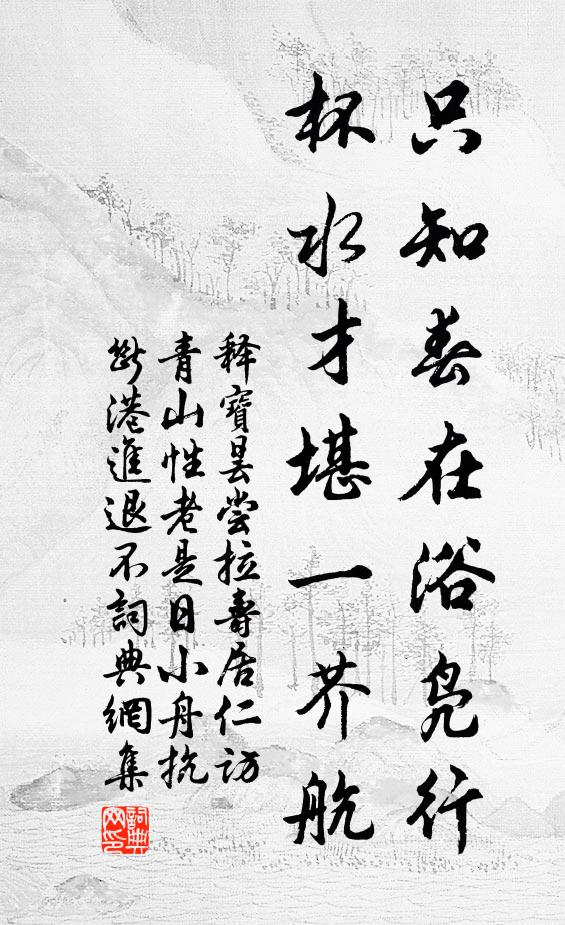 只知春在浴凫行
杯水才堪一芥航
释寶昙尝拉壽居仁访
青山性老是日小舟抗
断港進退不詞典網集
詞典网印